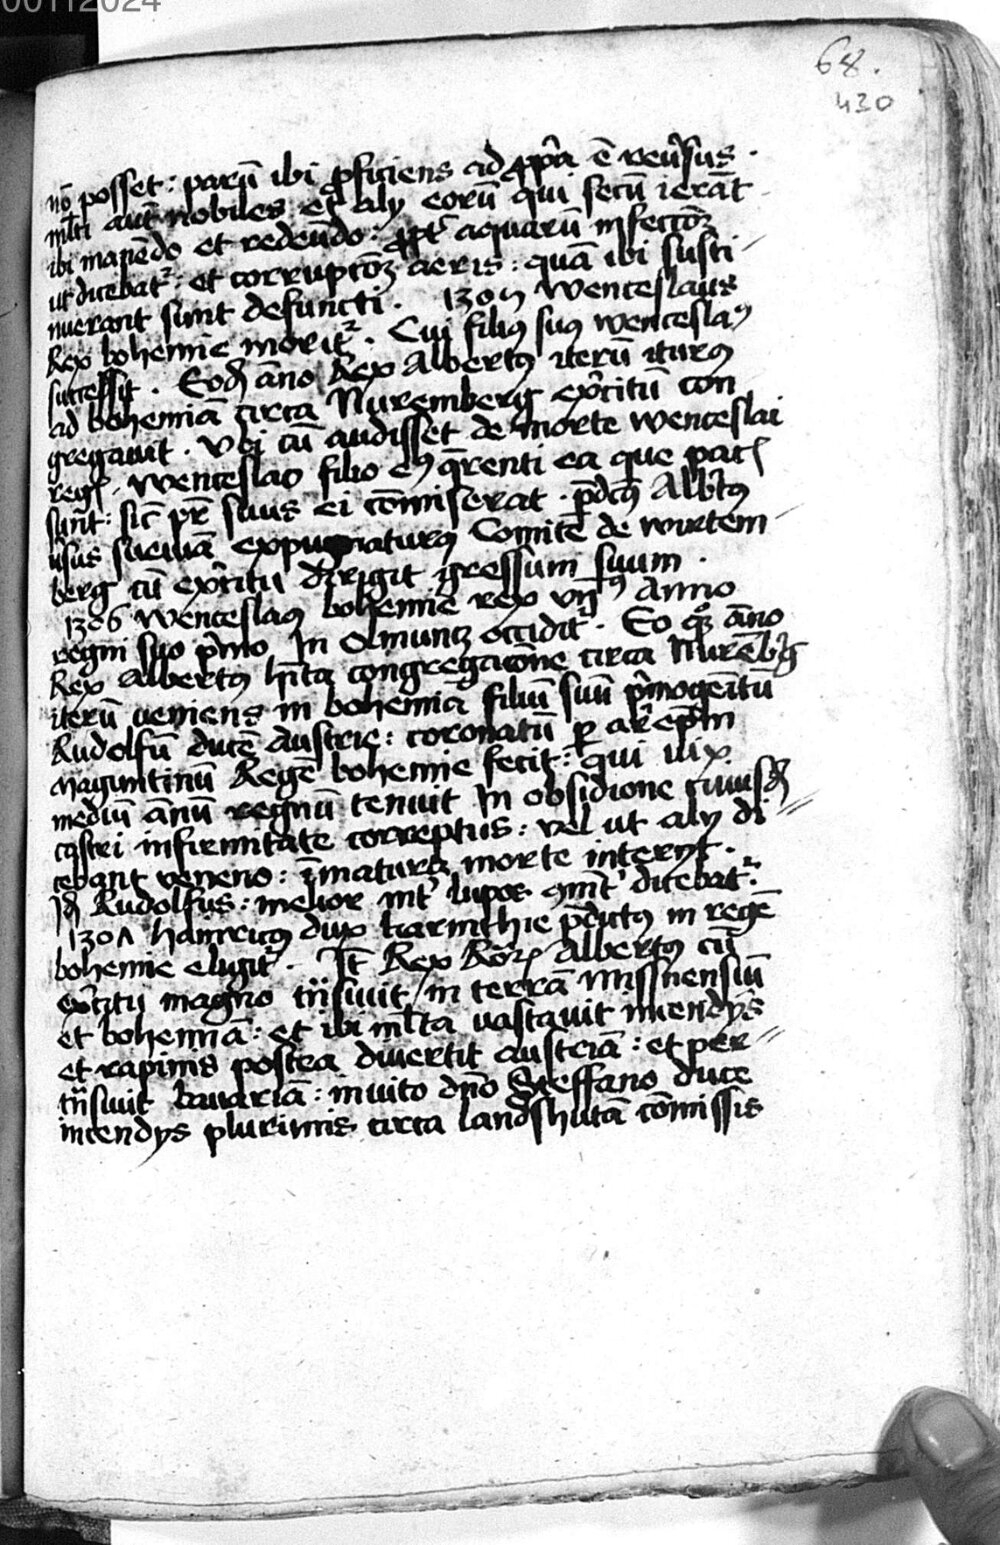 00112024
68.
430
nō posset : parū ibi ꝓficiens ad ꝓpͥa ē reuˀsus .
ml̄ti aut̄ nobiles et alij eorū qui secū ierāt
ibi manēdo et redeūdo : ꝓptˀ aquarū infectōꝫ
ut dicebatˀ : et corruptōꝫ aeris : quā ibi susti
nuerant sunt defuncti . 1305 Wenceslaus
Rex bohemie moritˀ . Cui filiꝰ suꝰ wenceslaꝰ
successit . Eodē āno Rex Albertꝰ iterū iturꝰ
ad bohemiā circa Nuremberg exˀcitū con
gregauit . Vbi cū audisset de morte wenceslai
regꝭ . wenceslao filio eiꝰ q̄renti ea que patꝭ
sunt : sic̄ pr̄ suus ei cōmiserat . p̄dcꝰ Albˀtꝰ
suēuiā expugnaturꝰ Comitē de wirtem
berg cū exˀcitu dirigit gressum suum .
1306 wenceslaꝰ bohemie rex Anno
regni suo pͥmo In Olmuncz occiditˀ . Eo āno
Rex Albertꝰ congregacōne circa Nurēbˀg
iterū ueniens in bohemiā filiū suū pͥmogēitū
Rudolfū ducē Austrie : coronatū ꝑ arˀep̄m
maguntinū Regē bohemie fecit : qui uix
mediū ānū regnū tenuit In obsidione cuiusdā
castri infirmitate correptus : vel ut alij di
cebant veneno : īmatura morte interijt .
Rudolfus : melior int̄ lupos dicebatˀ .
1307 hainricꝰ dux karinthie p̄dictꝰ in regē
bohemie eligitˀ . It̄ Rex Roꝝ Albertꝰ cū
exˀcitu magno trāsiuit in terrā missnensiū
et bohemiā : et ibi ml̄ta vastauit incendijs
et rapinis postea diuertit austriā : et per
trāsiuit bauariā : inuito dn̄o Steffano duce
incendijs plurimis circa landshutā cōmissis